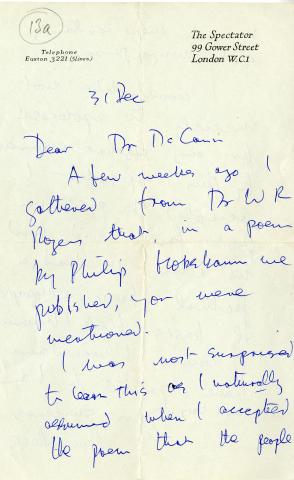 13a
Telephone
Euston 3221 (5 lines)
The Spectator
99 Gower Street
London W.C.1
31 Dec
Dear Dr McCann
A few weeks ago I
gathered from Dr W R
Rogers that, in a poem
by Philip Hobsbaum we
published, you were
mentioned.
I was most surprised
to learn this as I naturally
assumed when I accepted
the poem that the people